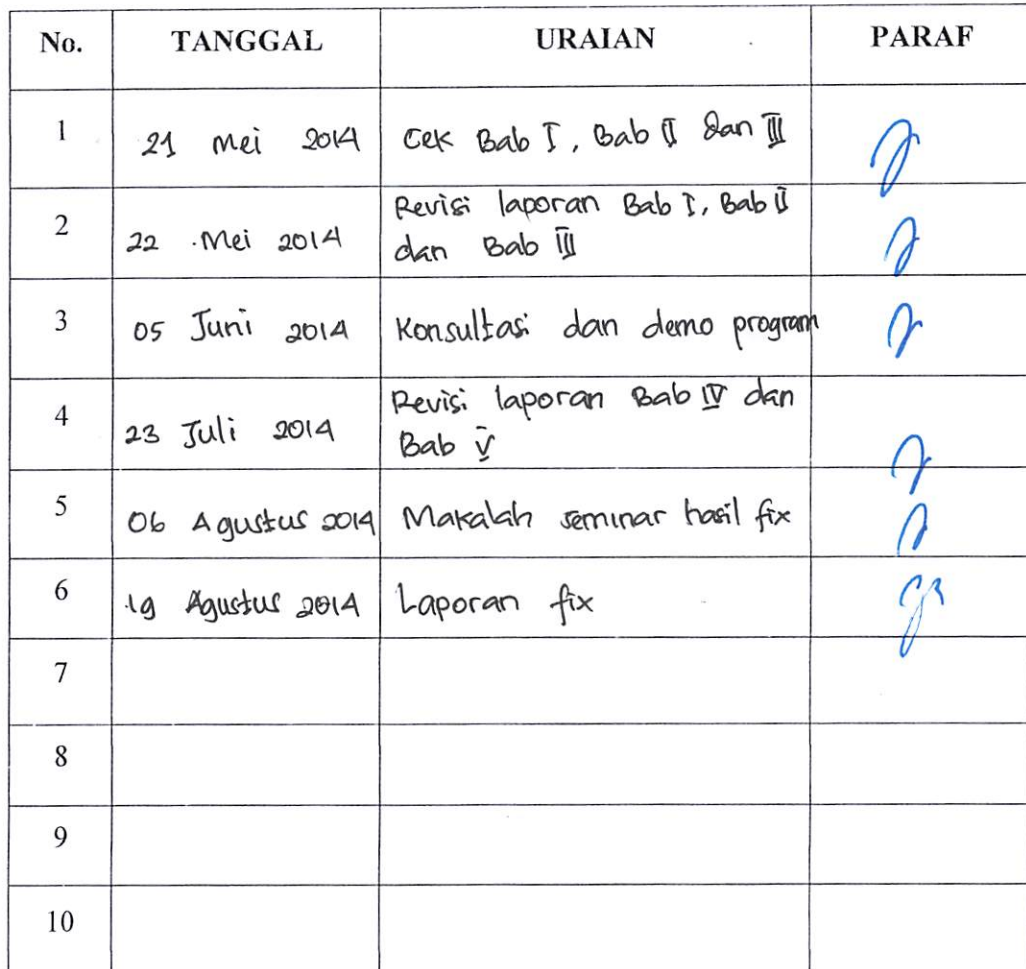 No. TANGGAL URAIAN PARAF
1 21 Mei 2014 Cek Bab I, Bab II dan III
2 22 Mei 2014 Revisi laporan Bab I, Bab II
dan Bab III
3 05 Juni 2014 Konsultasi dan demo program
4 23 Juli 2014 Revisi laporan Bab IV dan
Bab V
5 06 Agustus 2014 Makalah seminar hasil fix
6 19 Agustus 2014 Laporan fix
7
8
9
10